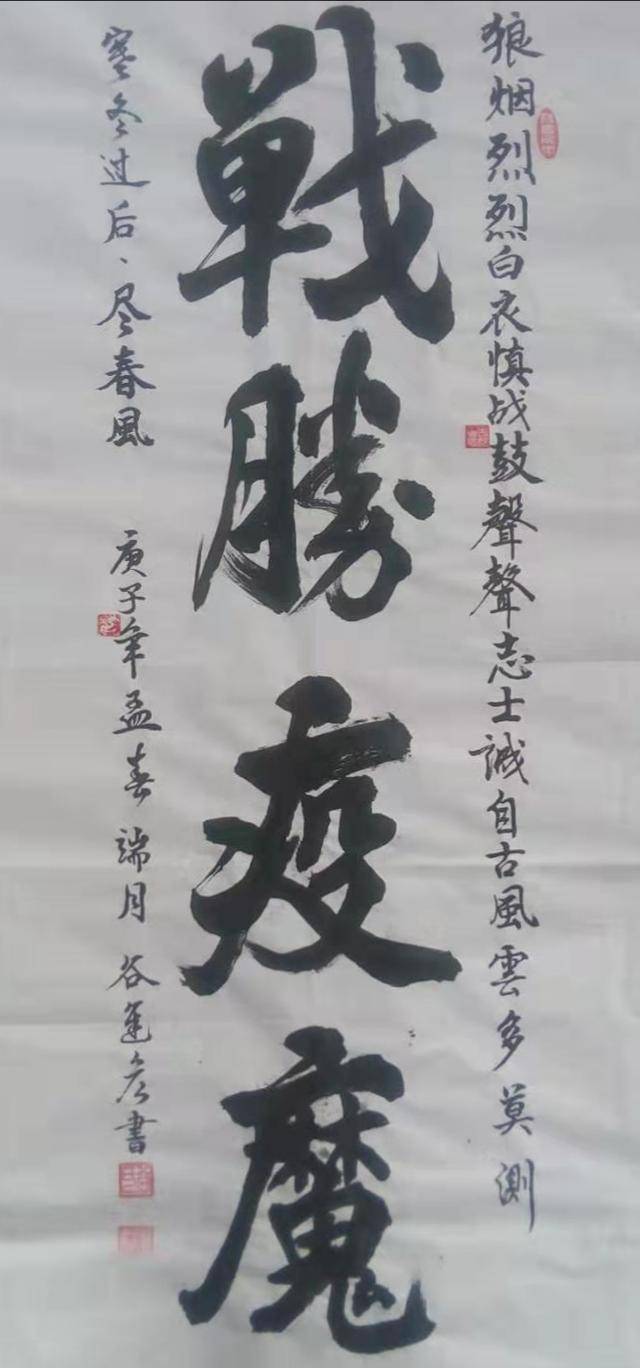 狼烟烈烈白衣慎战鼓聲聲志士誠自古風雲多莫测
戰勝疫魔
寒冬过后、尽春風
庚子年孟春端月 谷運彦書